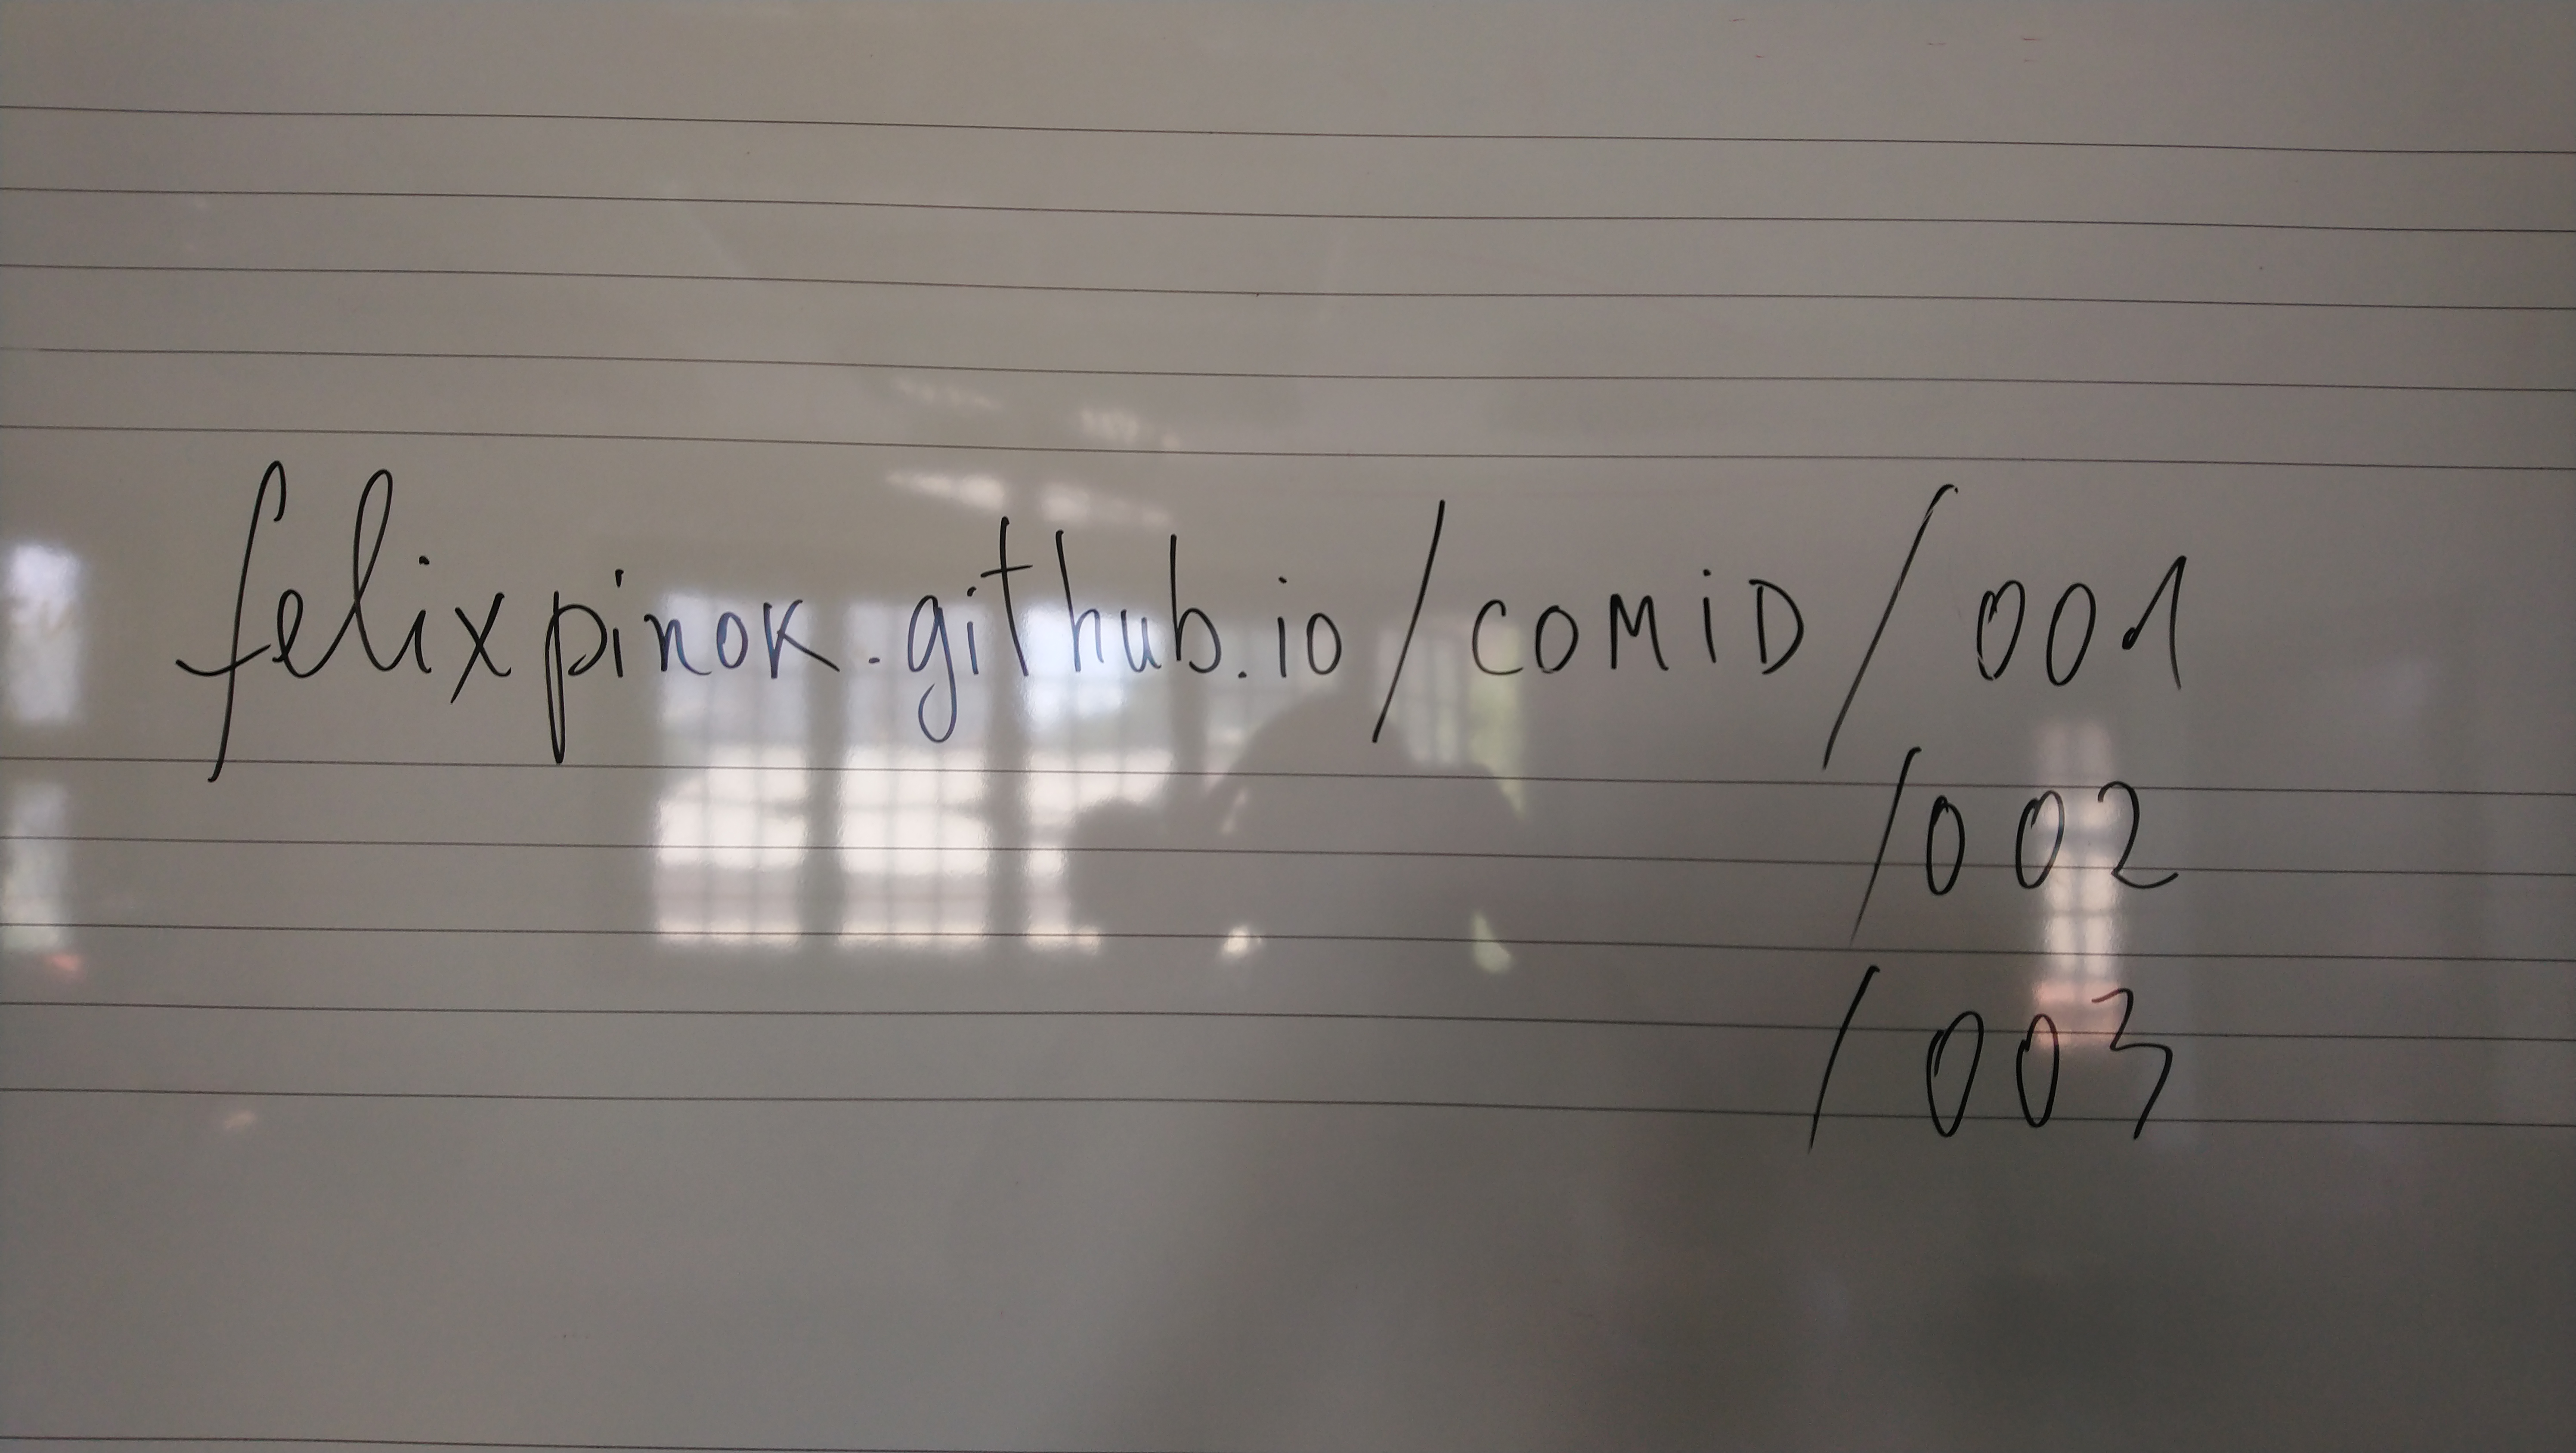 felixpinok.github.io/COMiD/001
/002
/003